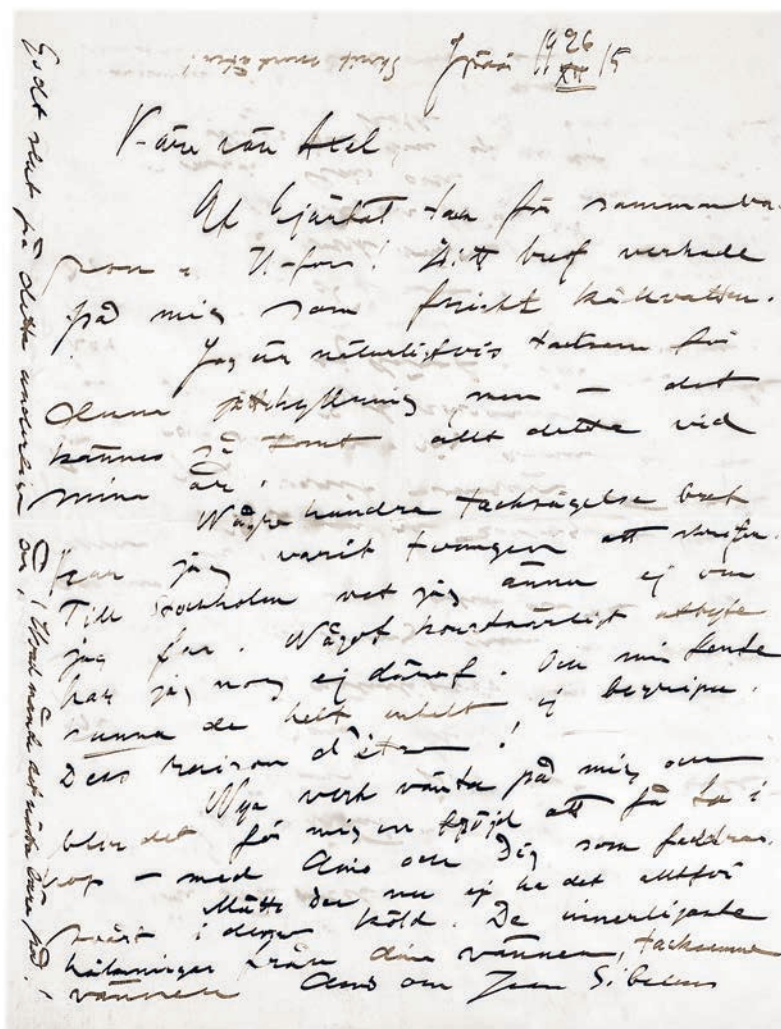 Skrif snart åter!
Jpää 19 26/XII 15
Kära vän Axel
Af hjärtat tack för sammanva-
ron i H-fors! Ditt bref verkade
på mig som friskt källvatten.
Jag är naturligtvis tacksam för
denna jättehyllning men – det
kännes så tomt allt detta vid
mina år.
Några hundra tacksägelse bref
har jag varit tvungen att skrifva.
Till Stockholm vet jag ännu ej om
jag far. Något konstnärligt utbyte
har jag nog ej däraf. Och min femte
kunna de helt enkelt ej begripa.
Dess raison d'être!
Nya verk vänta på mig och
blir det för mig en fröjd att få ta i
hop – med Aino och Dig som faddrar.
Måtte Du nu ej ha det alltför
svårt i denna köld. De innerligaste
hälsningar från dina vänner, tacksamme
vännen Aino och Jean Sibelius
Godt slut på detta underliga år! Hvad månde det nästa bära på.